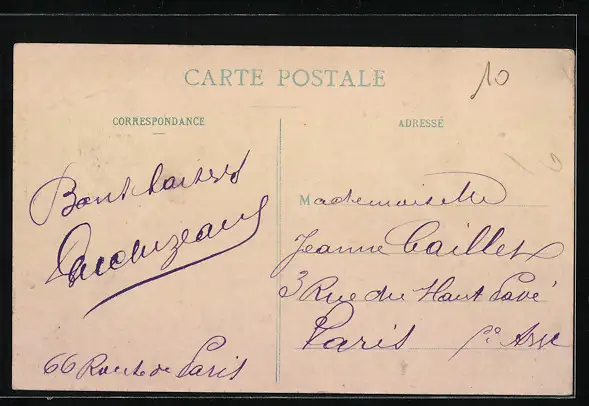 CARTE POSTALE
10
CORRESPONDANCE
ADRESSÉ
Bons baisers
Mademoiselle
Jeanne Caillet
3 Rue du Haut Pavé
Paris 5e Arr
66 Route de Paris